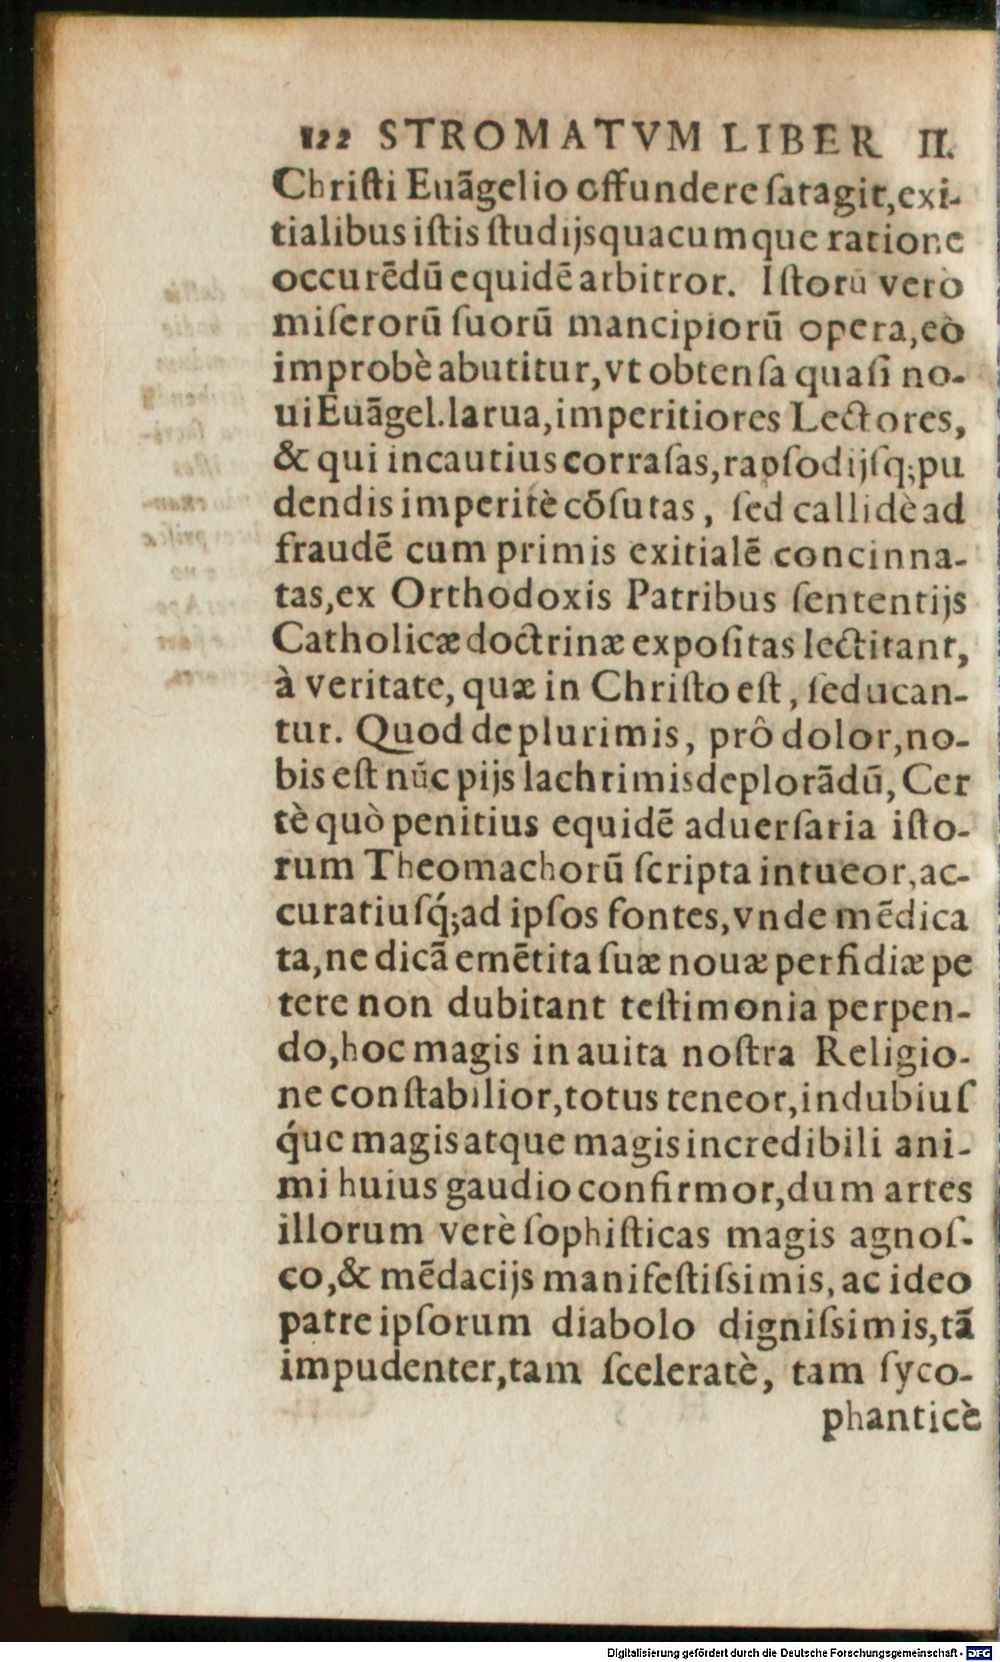 122 STROMATVM LIBER II.
Chriſti Euãgelio offundere ſatagit, exi-
tialibus iſtis ſtudijs quacumque ratione
occurẽdũ equidẽ arbitror. Iſtorũ verò
miſerorũ ſuorũ mancipiorũ opera, eò
improbè abutitur, vt obtenſa quaſi no-
ui Euãgel. larua, imperitiores Lectores,
& qui incautius corraſas, rapſodijſq; pu
dendis imperitè cõſutas, ſed callidè ad
fraudẽ cum primis exitialẽ concinna-
tas, ex Orthodoxis Patribus ſententijs
Catholicæ doctrinæ expoſitas lectitant,
à veritate, quæ in Chriſto eſt, ſeducan-
tur. Quod de plurimis, prô dolor, no-
bis eſt nũc pijs lachrimis deplorãdũ, Cer
tè quò penitius equidẽ aduerſaria iſto-
rum Theomachorũ ſcripta intueor, ac-
curatiuſq́; ad ipſos fontes, vnde mẽdica
ta, ne dicã emẽtita ſuæ nouæ perfidiæ pe
tere non dubitant teſtimonia perpen-
do, hoc magis in auita noſtra Religio-
ne conſtabilior, totus teneor, indubiuſ
q́ue magis atque magis incredibili ani-
mi huius gaudio confirmor, dum artes
illorum verè ſophiſticas magis agnoſ-
co, & mẽdacijs manifeſtiſsimis, ac ideo
patre ipſorum diabolo digniſsimis, tã
impudenter, tam ſceleratè, tam ſyco-
phanticè
Digitalisierung gefördert durch die Deutsche Forschungsgemeinschaft - DFG